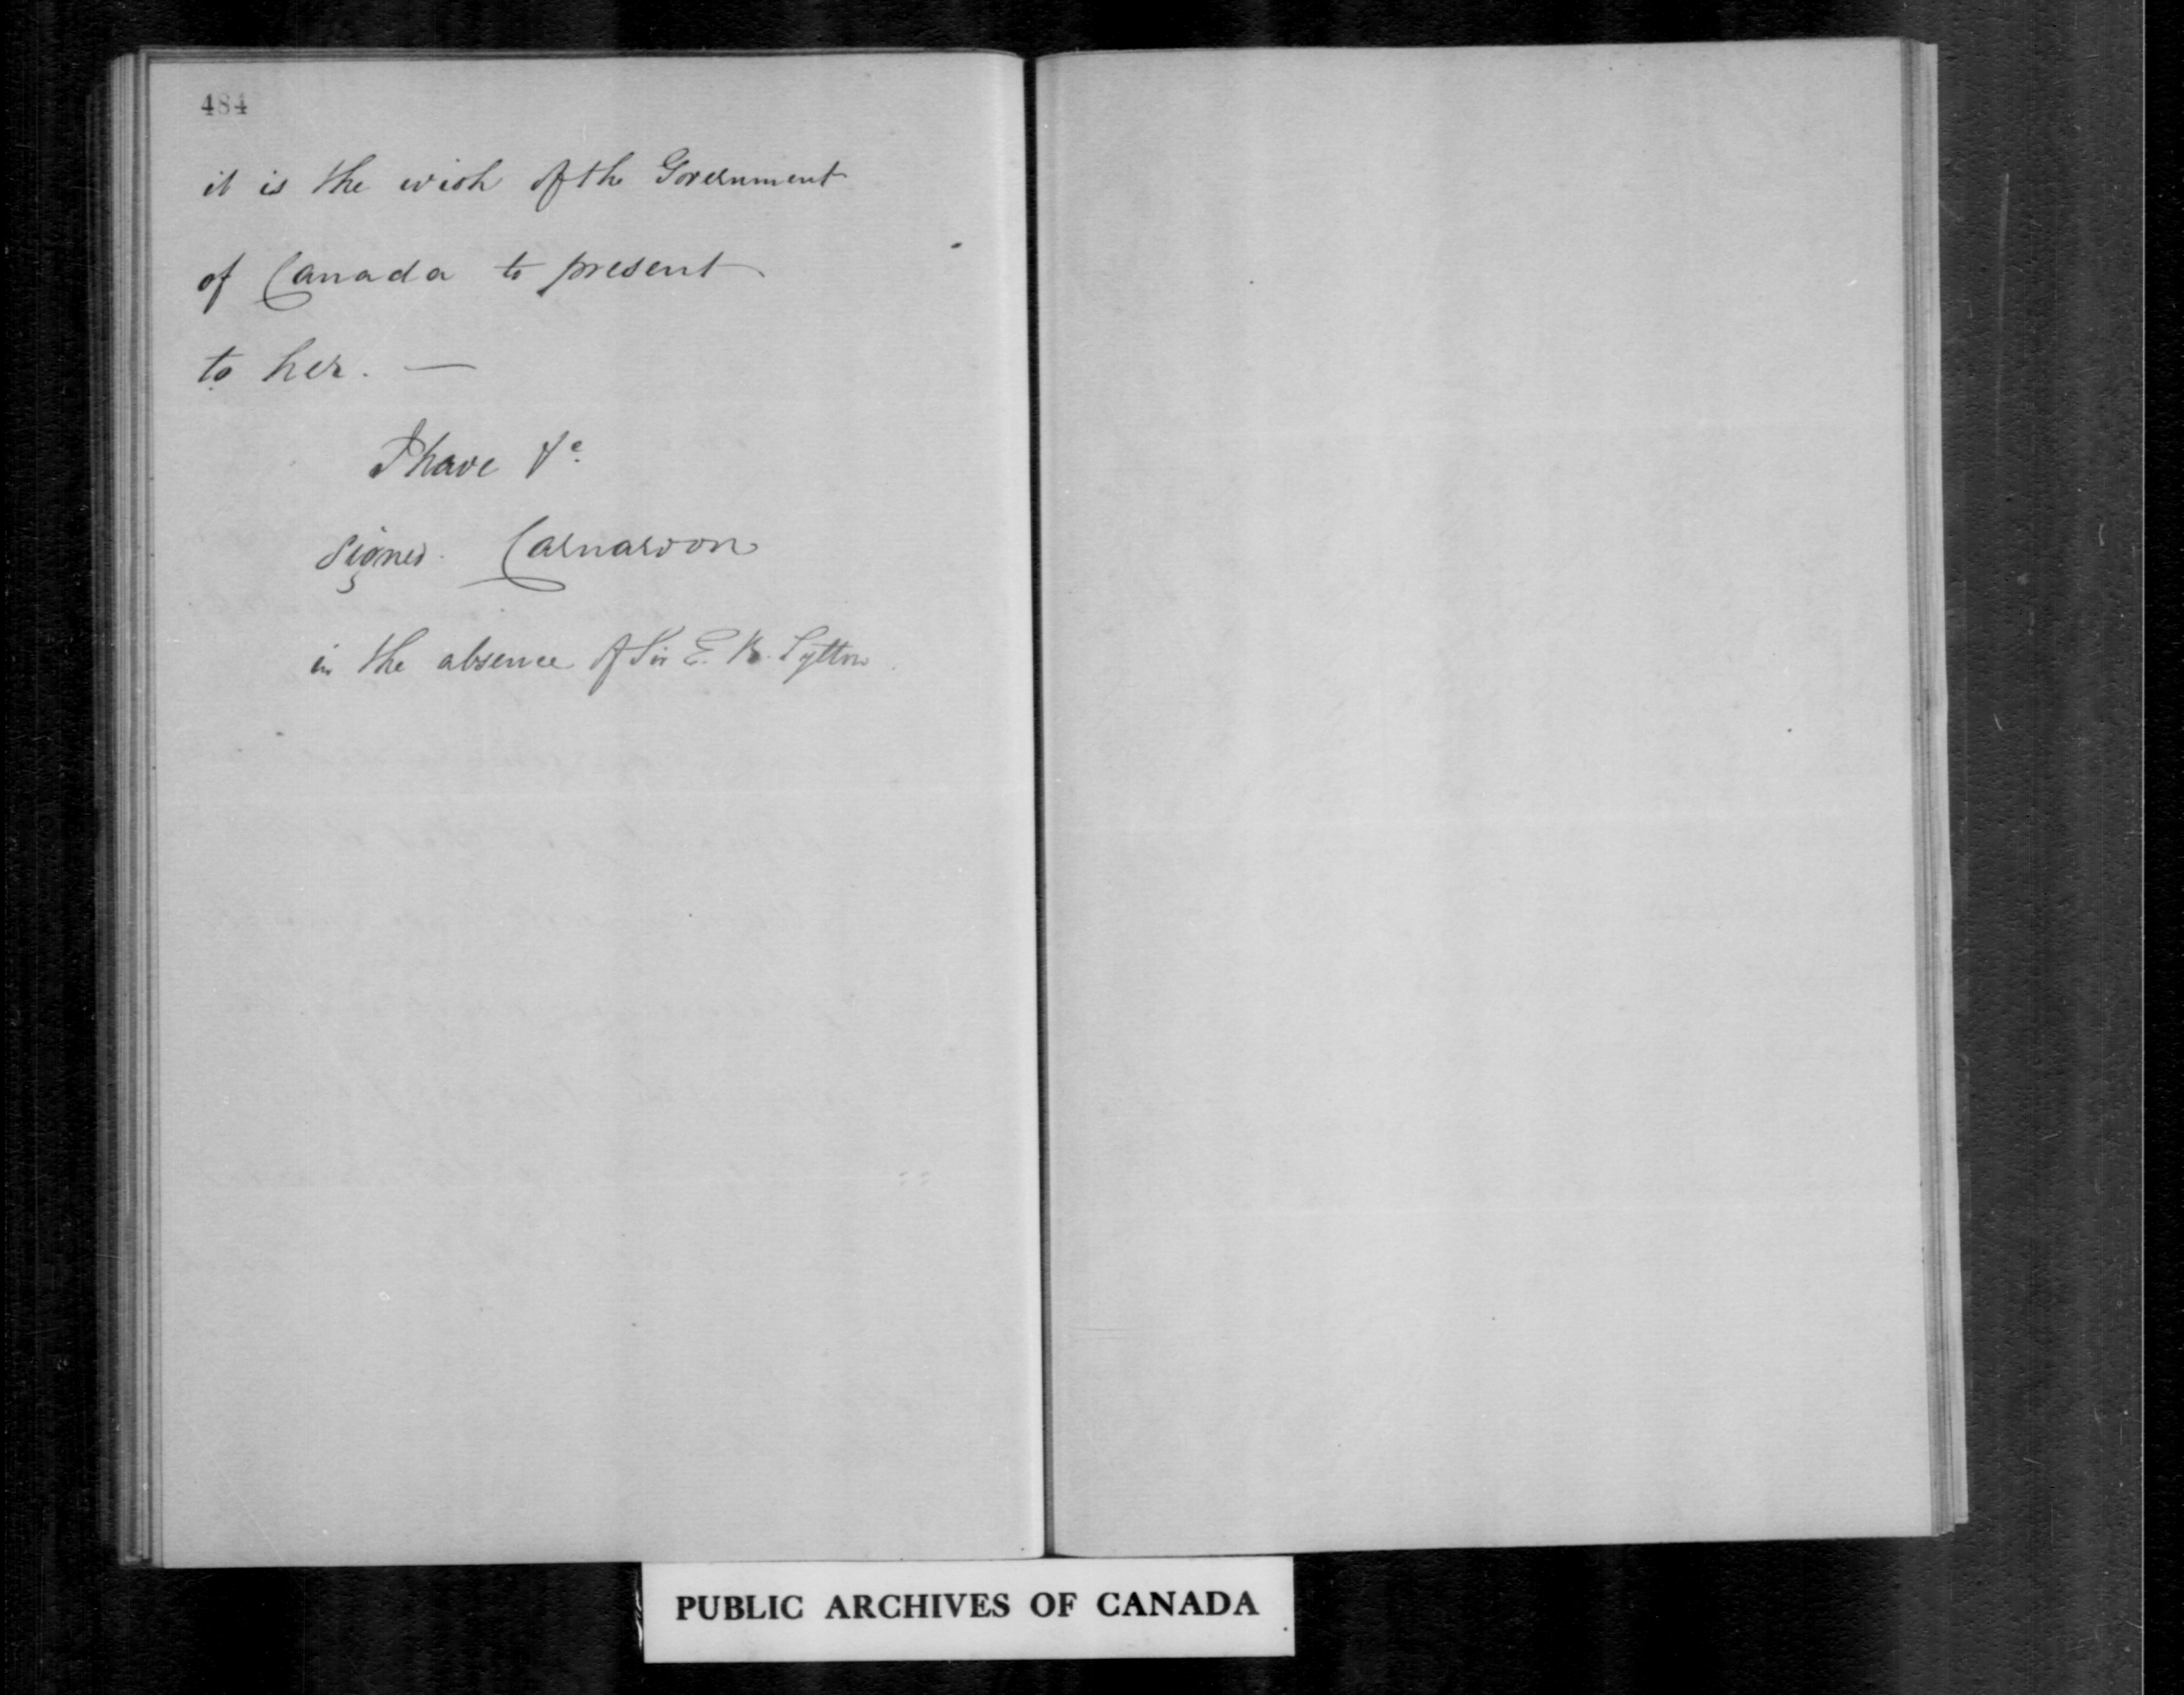 484
it is the wish of the Government
of Canada to present
to her. —
I have &c.
Signed. Carnarvon
in the absence of Sir E. B. Lytton
PUBLIC ARCHIVES OF CANADA